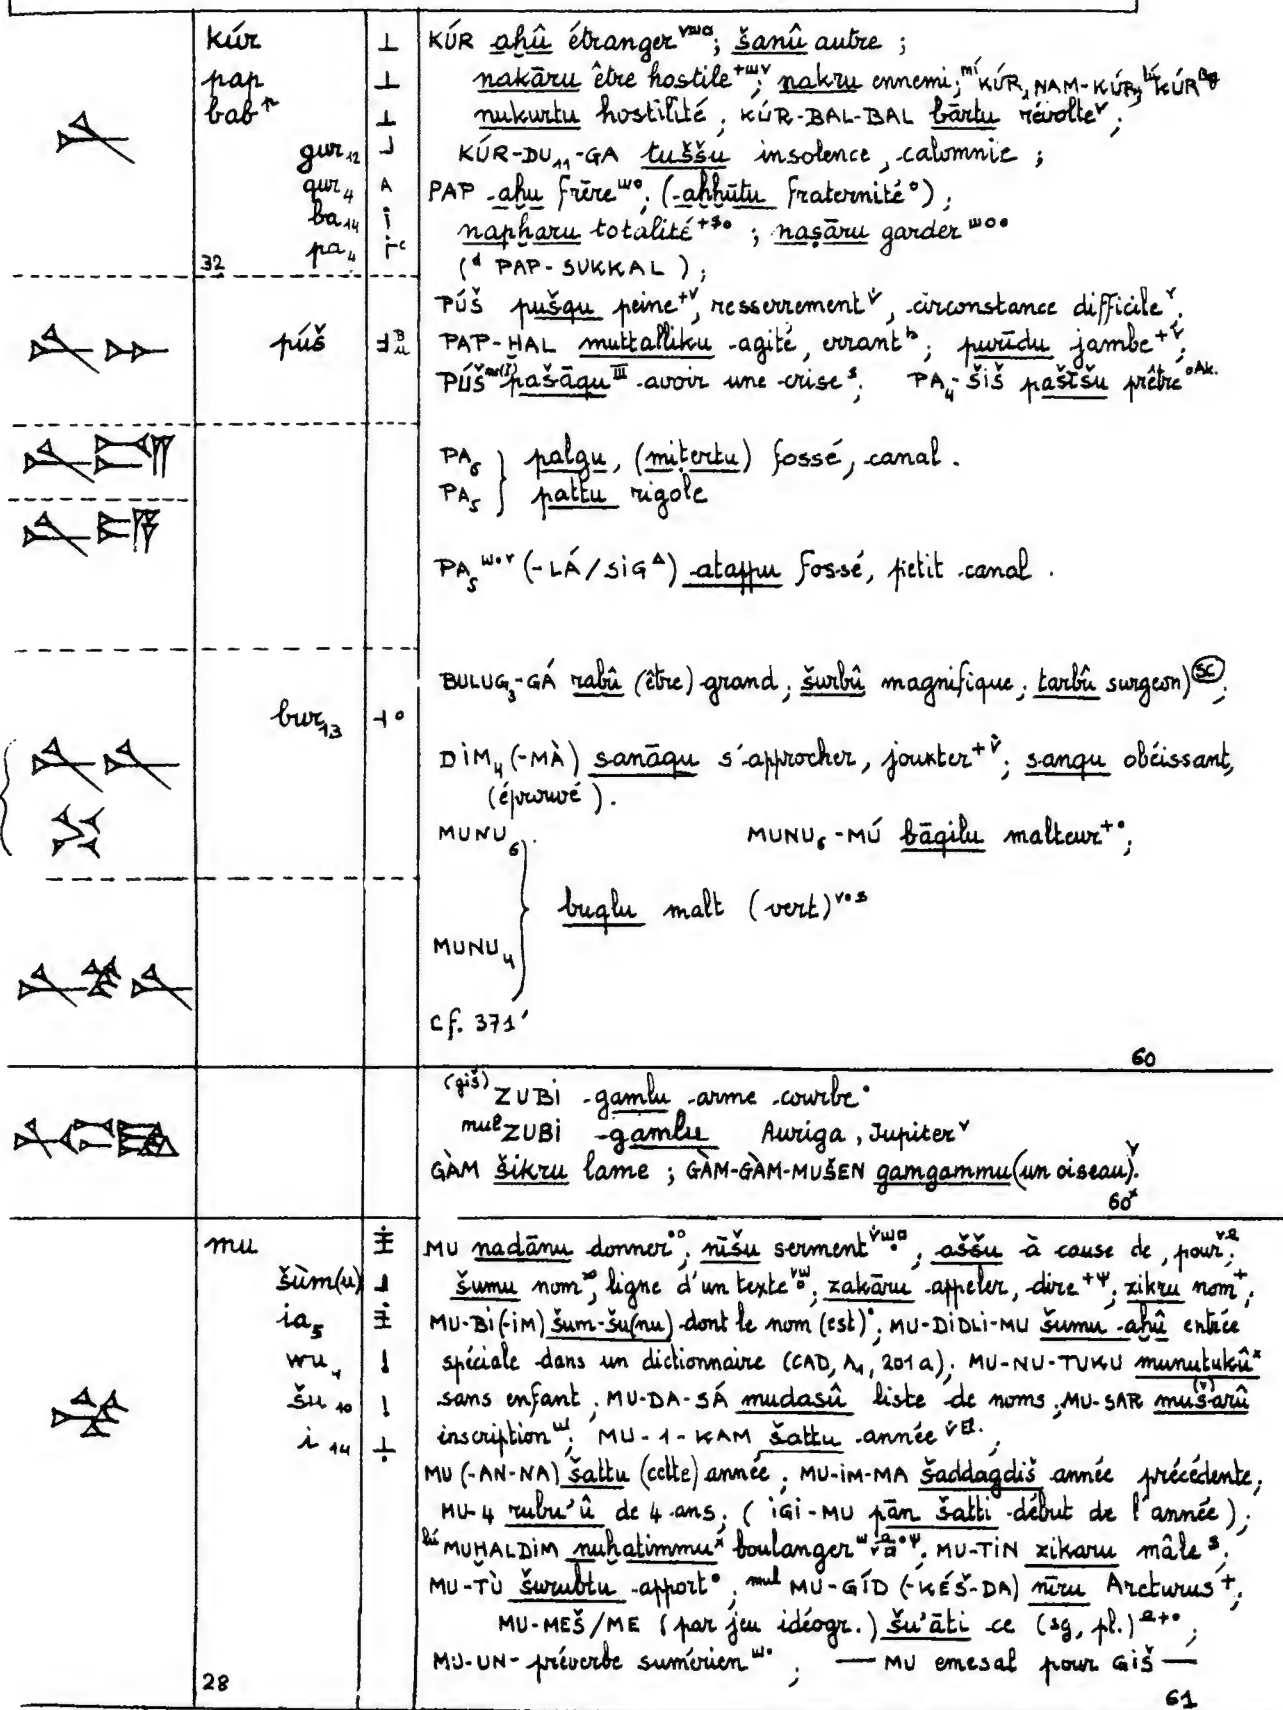 kúr ⊥ KÚR aḫû étranger ; šanû autre ;
pap ⊥ nakāru être hostile ; nakru ennemi ; mí KÚR, NAM-KÚR, lú KÚR
bab ⊥ nukurtu hostilité ; KÚR-BAL-BAL bārtu révolte ;
gur₁₂ KÚR-DU₁₁-GA tuššu insolence, calomnie ;
qur₄ PAP aḫu frère ; (aḫḫūtu fraternité) ;
ba₁₄ napḫaru totalité ; naṣāru garder
32 pa₄ (d PAP-SUKKAL) ;
PÚŠ pušqu peine, resserrement, circonstance difficile.
púš PAP-ḪAL muttalliku agité, errant ; purīdu jambe ;
PÚŠ pašāqu III avoir une crise ; PA₄-ŠIŠ pašīšu prêtre oAk.
PA₆ } palgu, (miṭertu) fossé, canal.
PA₅ } pattu rigole
PA₅ (-LÁ/SIG) atappu fossé, petit canal.
BULUG₃-GÁ rabû (être) grand ; šurbû magnifique ; tarbû surgeon) SC ;
bur₁₃
DIM₄ (-MÀ) sanāqu s'approcher, jouxter ; sanqu obéissant,
(éprouvé).
MUNU₆ MUNU₆-MÚ bāqilu malteur ;
buqlu malt (vert)
MUNU₄
cf. 371'
60
(giš) ZUBI gamlu arme courbe
mul ZUBI gamlu Auriga, Jupiter
GÀM šikru lame ; GÀM-GÀM-MUŠEN gamgammu (un oiseau).
60*
mu MU nadānu donner ; nīšu serment ; aššu à cause de, pour ;
šùm(u) šumu nom, ligne d'un texte ; zakāru appeler, dire ; zikru nom ;
ia₅ MU-BI(-IM) šum-šu(nu) dont le nom (est) ; MU-DIDLI-MU šumu aḫû entrée
wu₄ spéciale dans un dictionnaire (CAD, A₁, 201a) ; MU-NU-TUKU munutukû
šu₁₀ sans enfant ; MU-DA-SÁ mudasû liste de noms ; MU-SAR mušarû
i₁₄ inscription ; MU-1-KAM šattu année ;
MU (-AN-NA) šattu (cette) année ; MU-IM-MA šaddagdiš année précédente ;
MU-4 rubu'û de 4 ans ; (IGI-MU pān šatti début de l'année) ;
lú MUḪALDIM nuḫatimmu boulanger ; MU-TIN zikaru mâle ;
MU-TÙ šurubtu apport ; mul MU-GÍD (-KÉŠ-DA) nīru Arcturus ;
MU-MEŠ/ME (par jeu idéogr.) šu'āti ce (sg, pl.) ;
MU-UN- préverbe sumérien ; — MU emesal pour GIŠ —
28
61